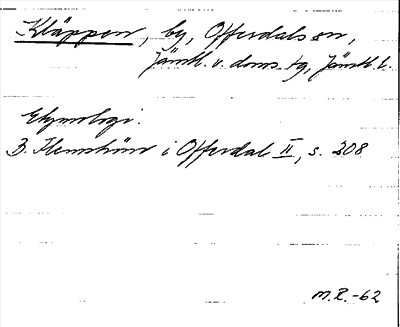 Kläppen, by, Offerdals sn,
Jämtl. v. doms. tg, Jämtl. l.
Etymologi.
B. Flemström i Offerdal II, s. 208
M.R.-62